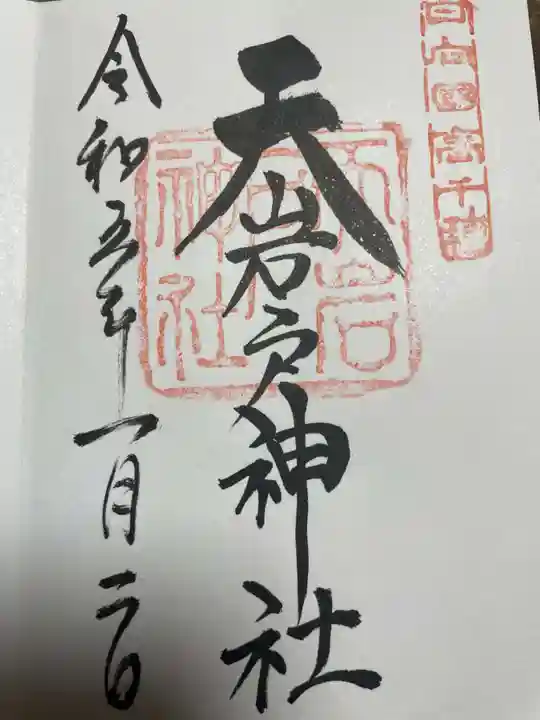 日向国高千穂
天岩戸神社
天岩戸神社
令和五年一月二日